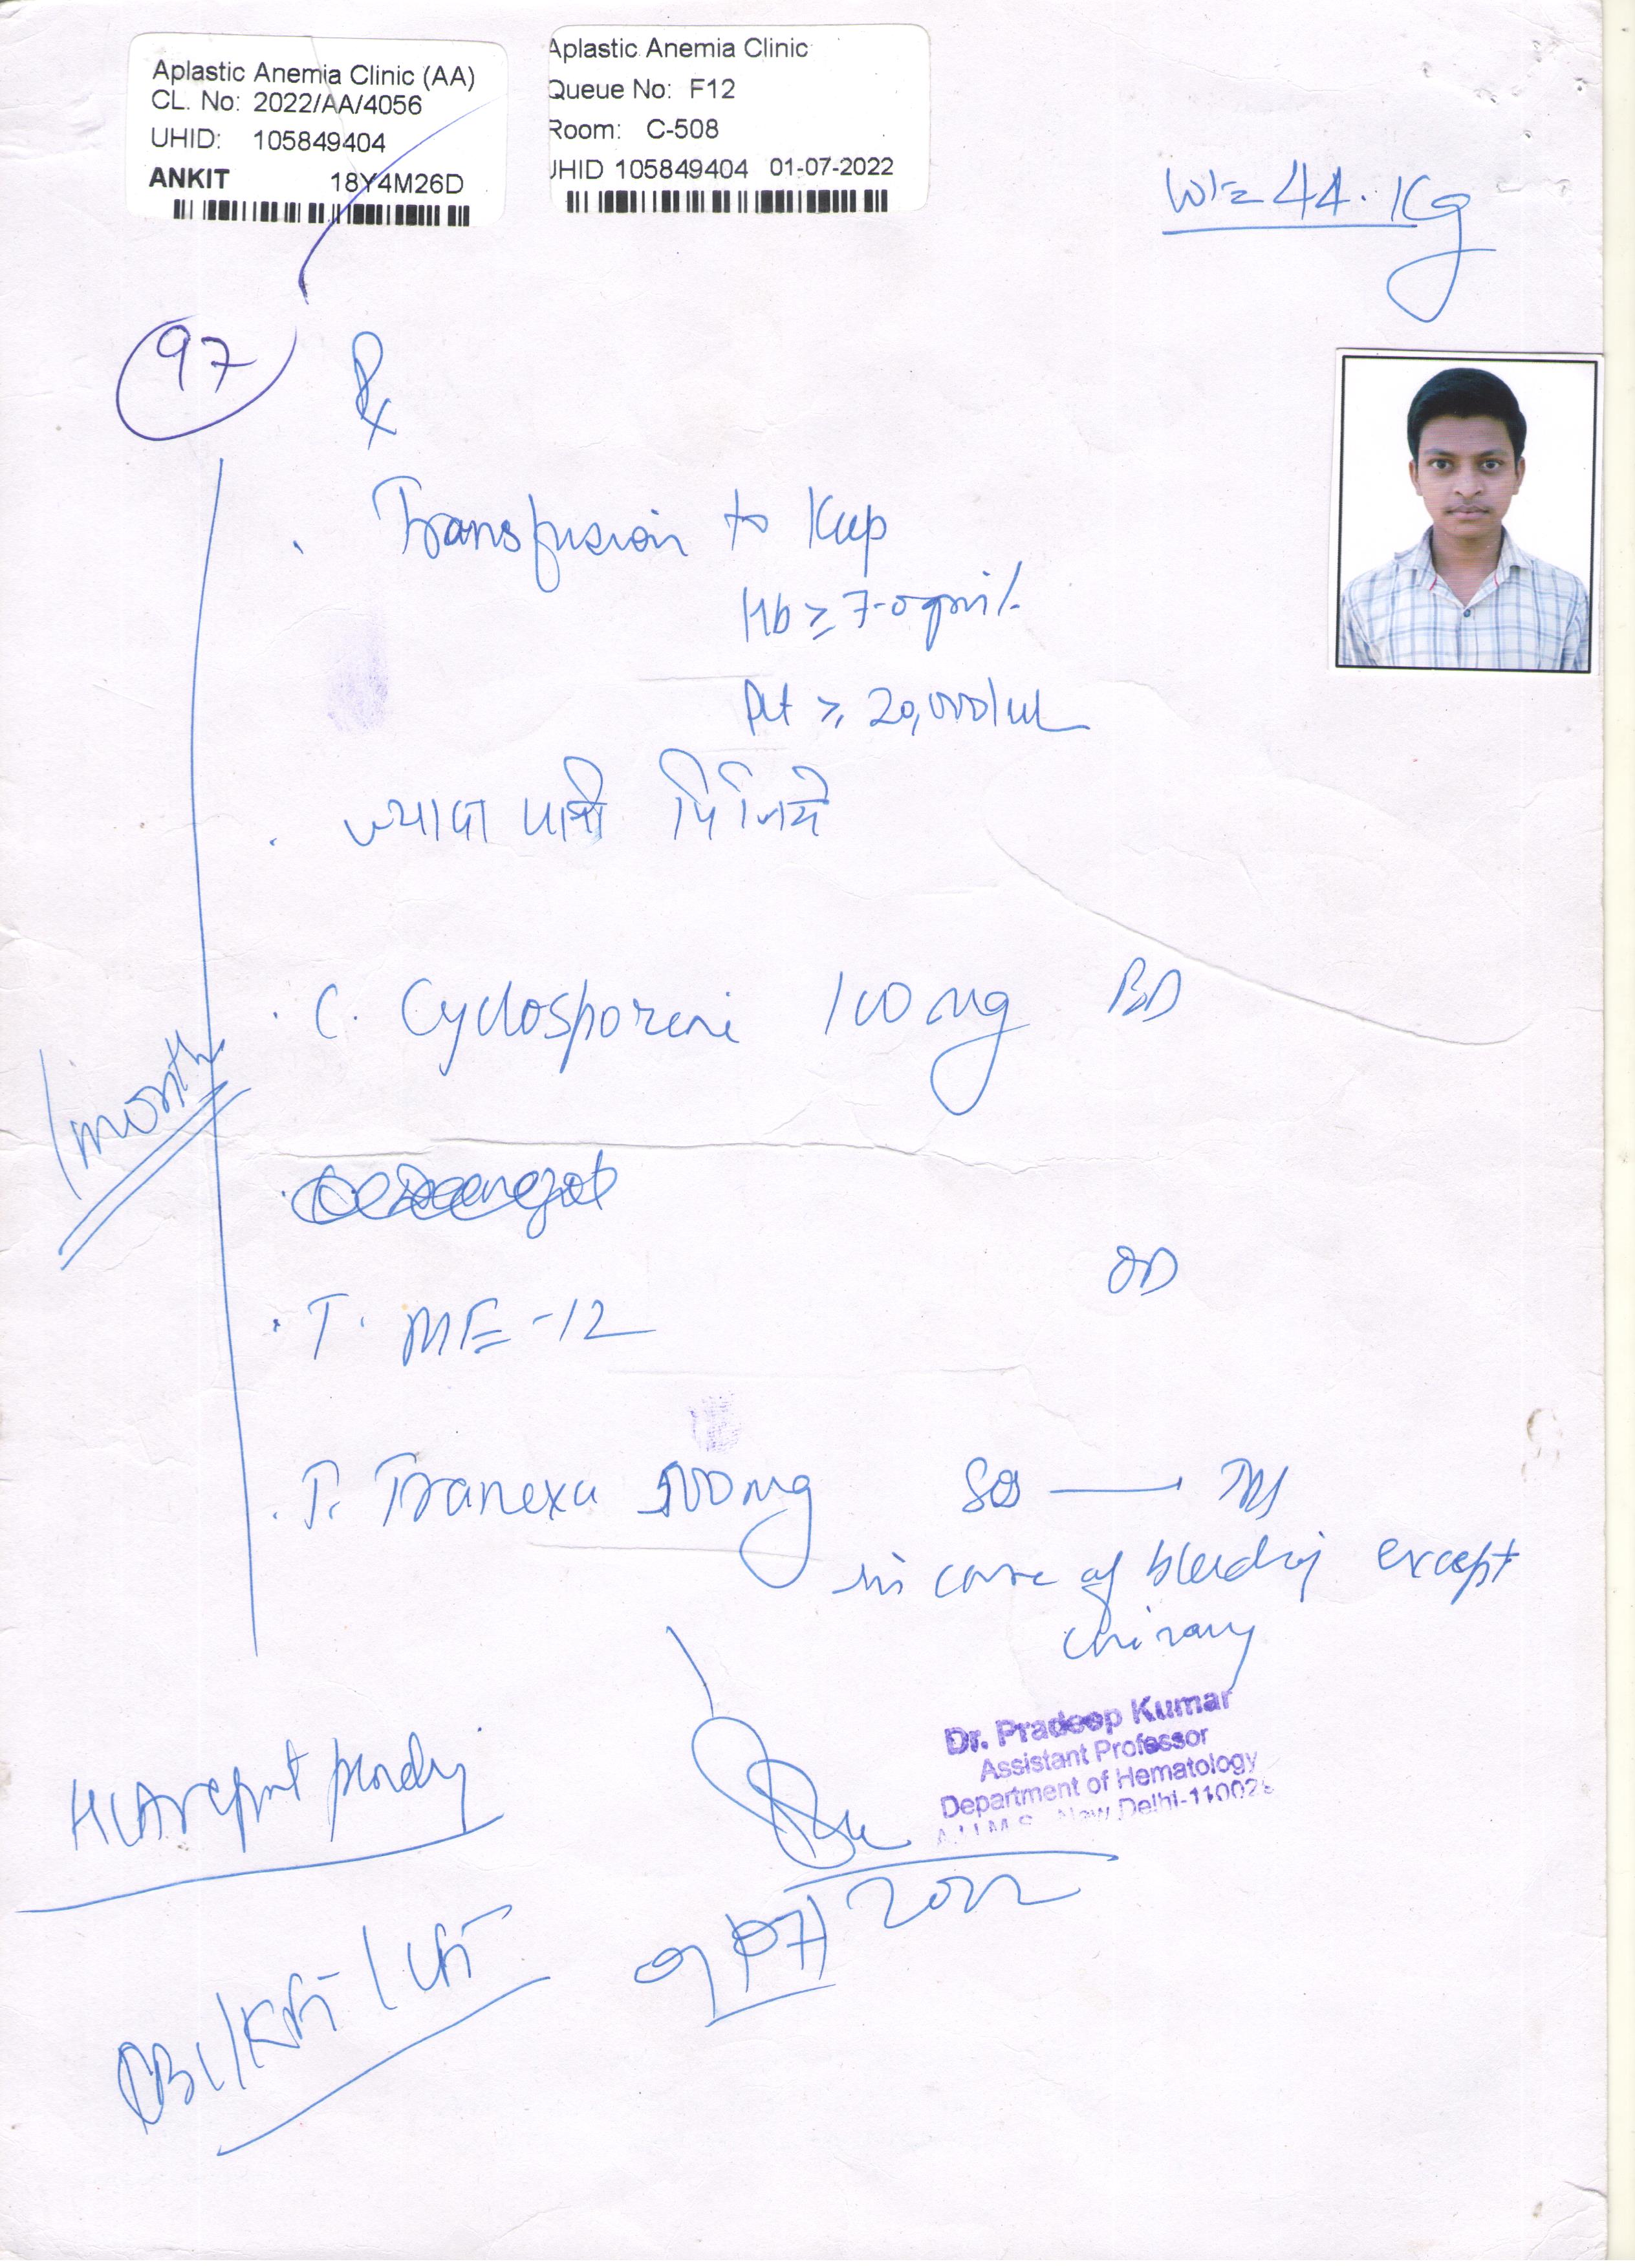 Aplastic Anemia Clinic (AA)
CL. No: 2022/AA/4056
UHID: 105849404
ANKIT 18Y4M26D
Aplastic Anemia Clinic
Queue No: F12
Room: C-508
UHID 105849404 01-07-2022
Wt = 44. Kg
97
Rx
Transfusion to Keep
Hb ≥ 7.0 gm/.
Plt ≥ 20,000/uL
ज्यादा पानी पिजिये
C. Cyclosporine 100 mg BD
1 month
OD
T. MF-12
T. Tranexa 500 mg SOS — TDS
in case of bleeding except
urinary
Dr. Pradeep Kumar
Assistant Professor
Department of Hematology
A.I.I.M.S., New Delhi-110029
HLA report pending
/07/2022
CBC/KFT/LFT